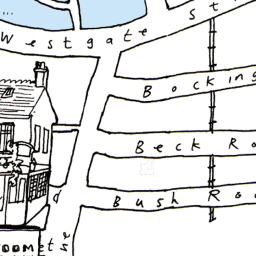 Westgate St
Bocking
Beck Ro
Bush Roa